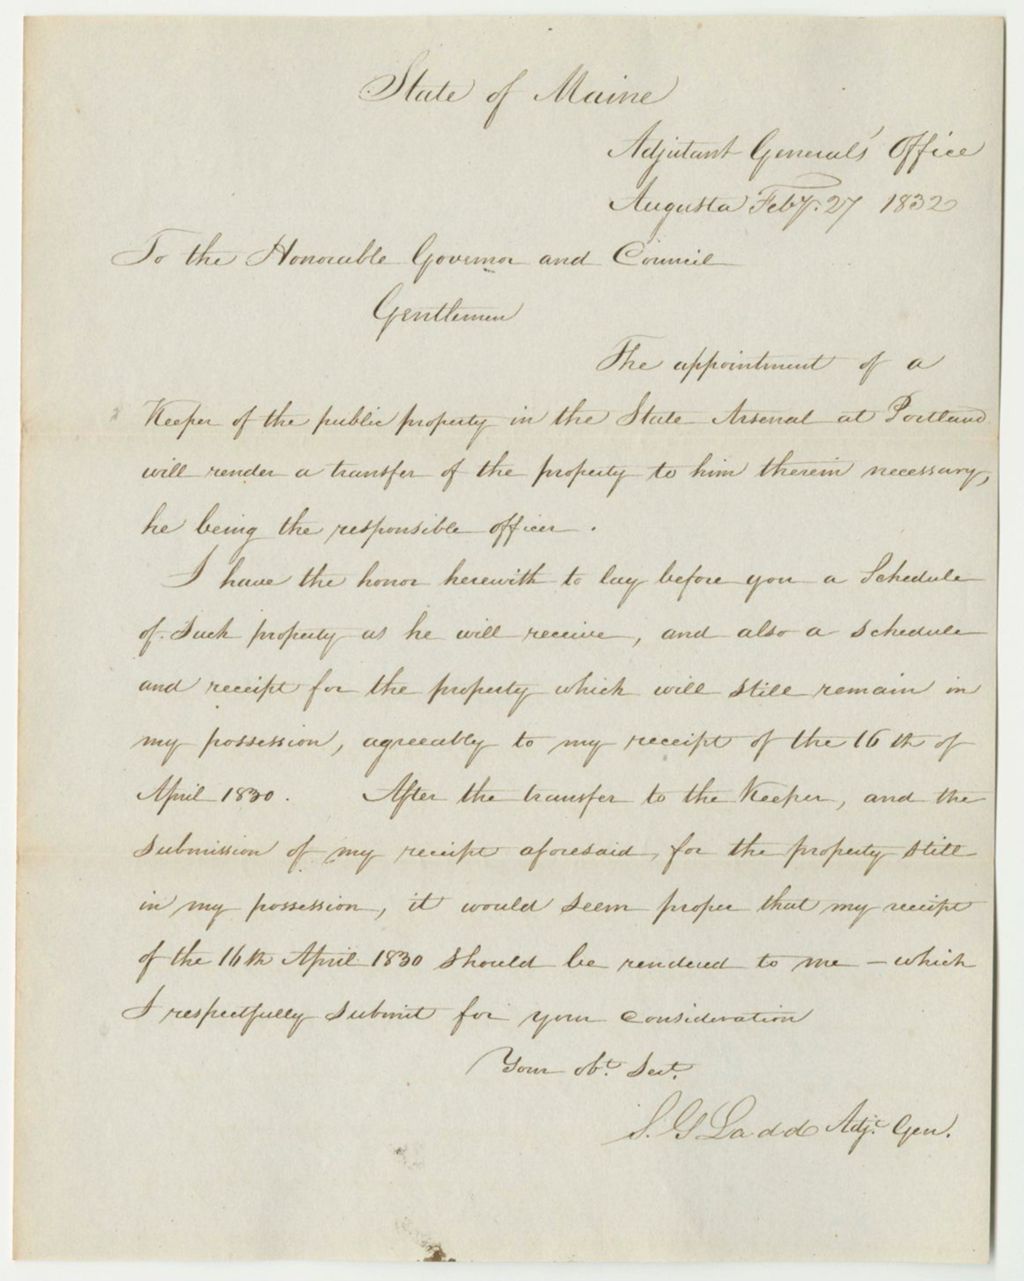 State of Maine
Adjutant Generals' Office
Augusta Feby. 27 1832
To the Honorable Governor and Council
Gentlemen
The appointment of a
Keeper of the public property in the State Arsenal at Portland
will render a transfer of the property to him therein necessary,
he being the responsible officer.
I have the honor herewith to lay before you a Schedule
of such property as he will receive, and also a schedule
and receipt for the property which will still remain in
my possession, agreeably to my receipt of the 16th of
April 1830. After the transfer to the Keeper, and the
submission of my receipt aforesaid, for the property still
in my possession, it would seem proper that my receipt
of the 16th April 1830 should be rendered to me – which
I respectfully submit for your consideration
Your obt. Sert.
S. G Ladd Adjt. Gen.